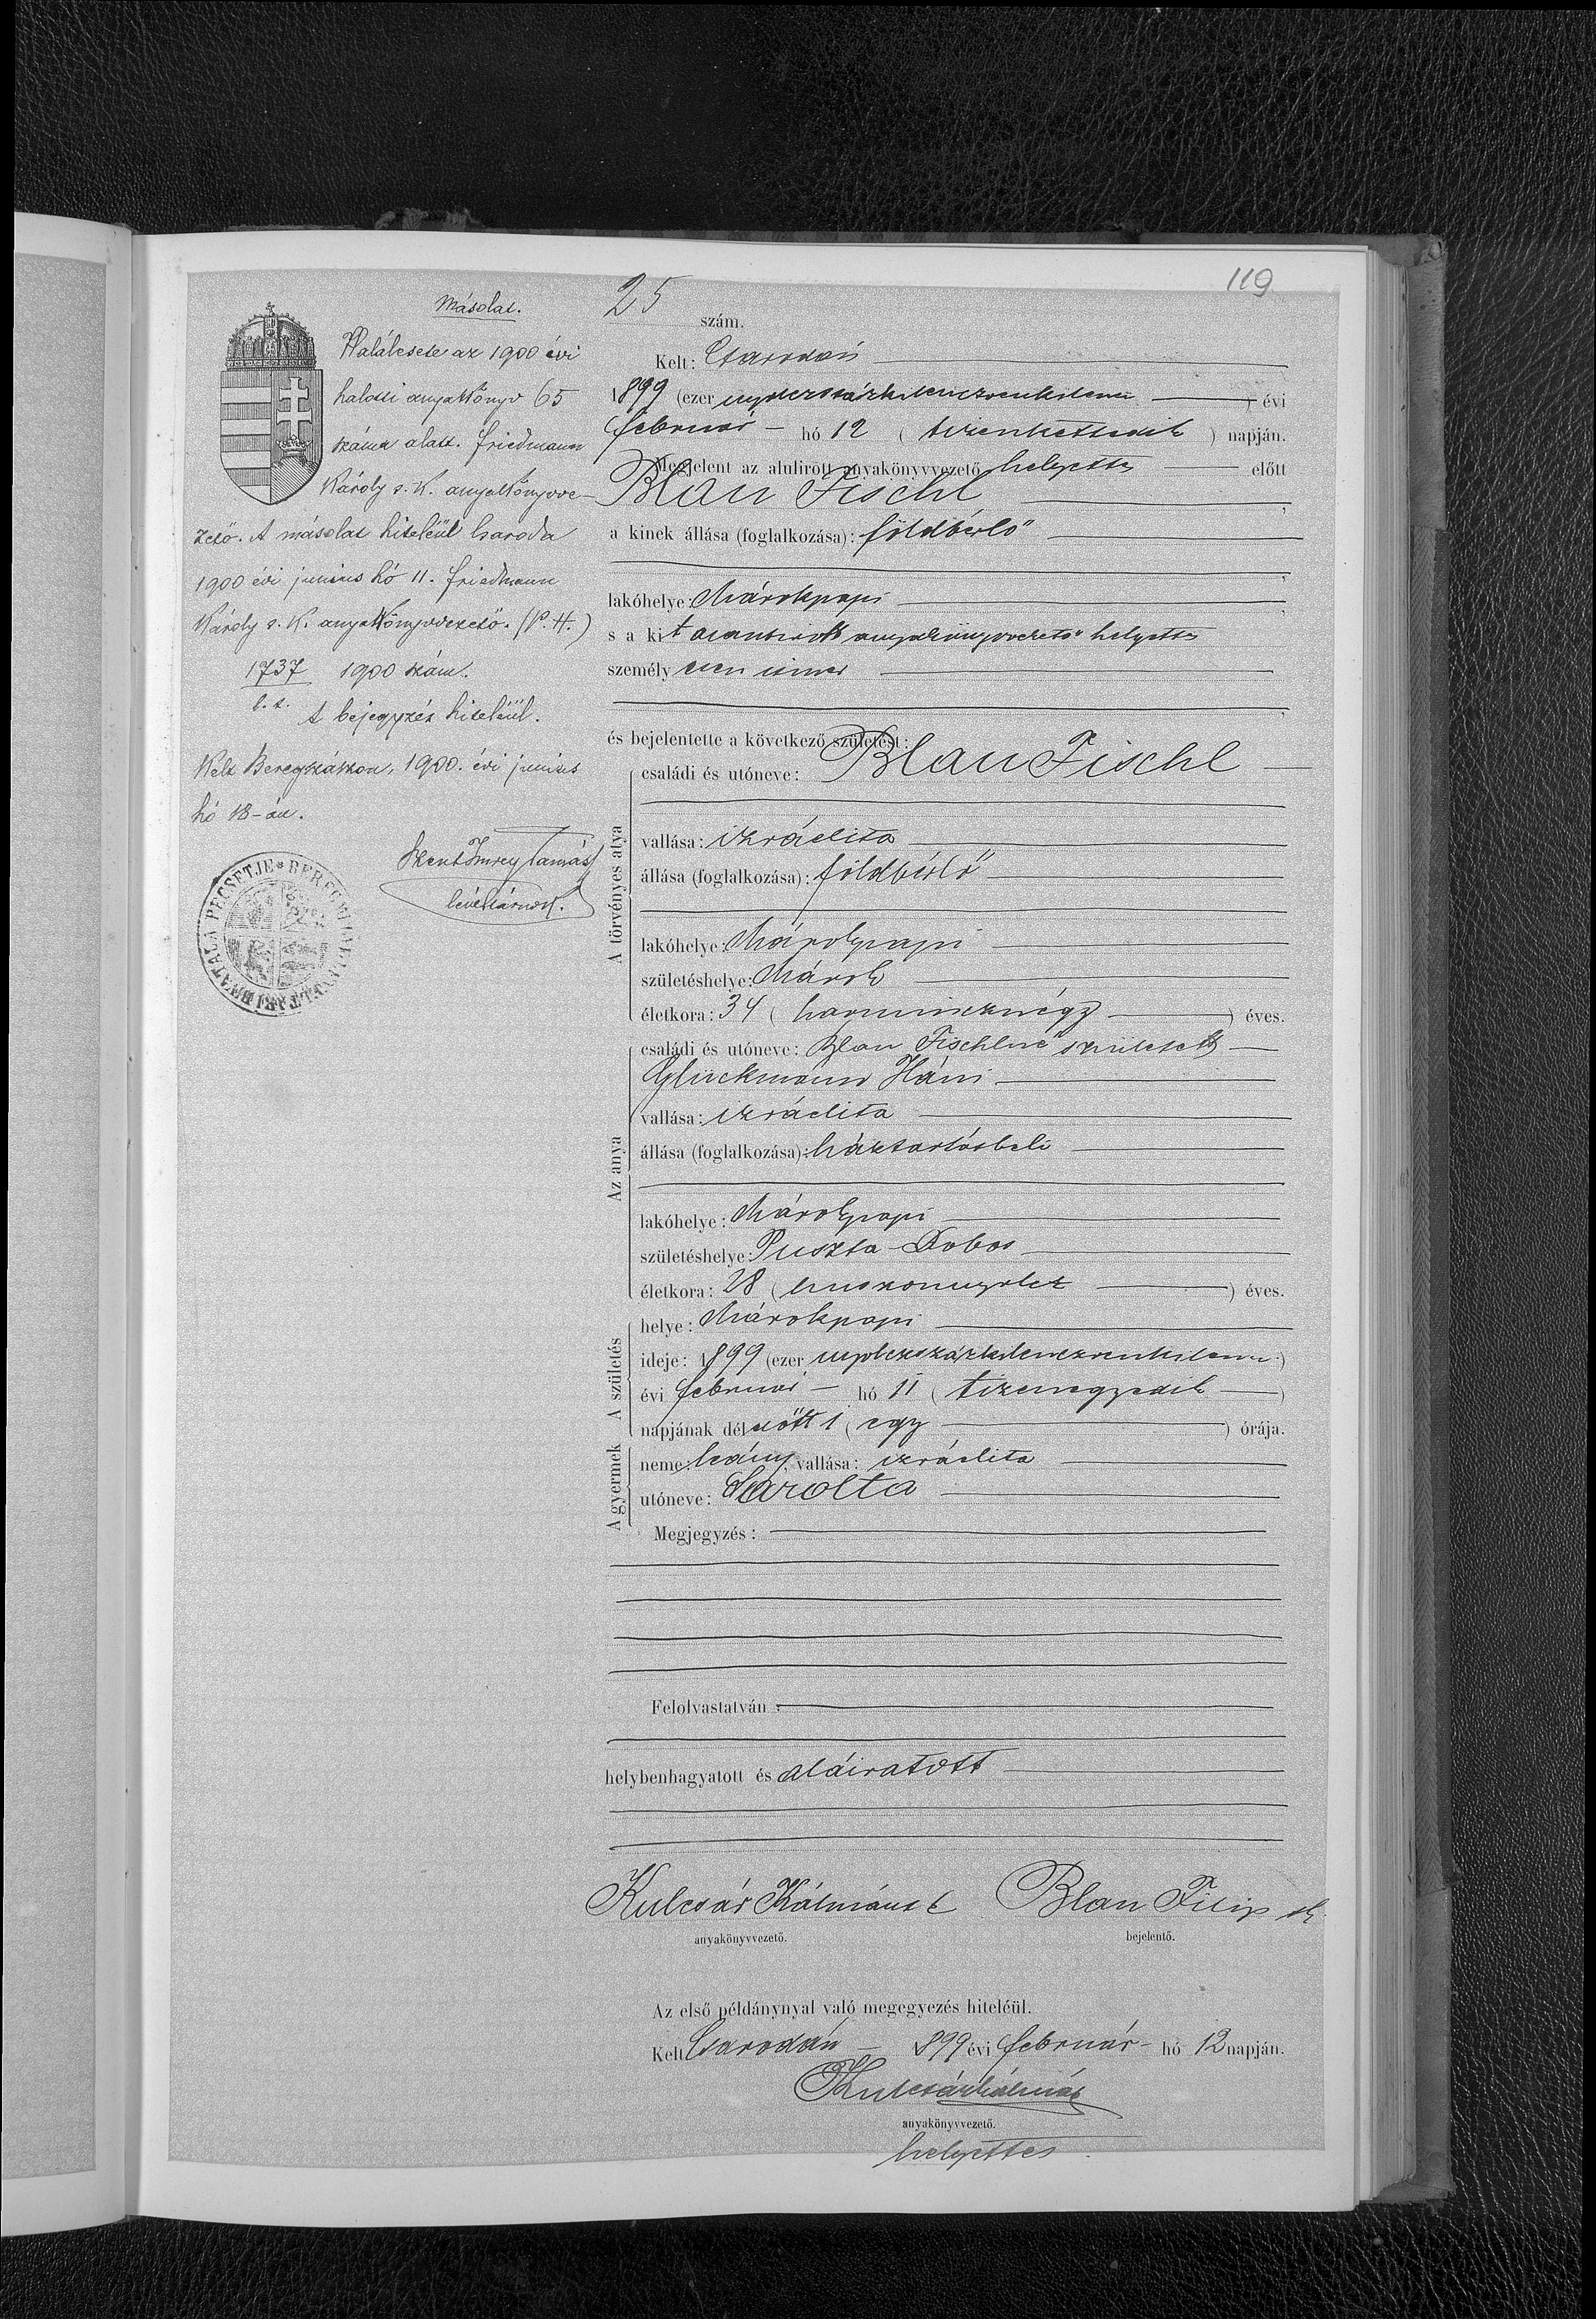 119
Másolat.
Halálesete az 1900 évi
halotti anyakönyv 65
száma alatt. Friedmann
Károly s. k. anyakönyvve-
zető. A másolat hiteléül Csaroda
1900 évi junius hó 11. Friedmann
Károly s. k. anyakönyvvezető. (P. H.)
1737 1900 szám.
A bejegyzés hiteléül.
Kelt Beregszászon, 1900. évi junius
hó 18-án.
Szent Imrey Tamás
levéltárnok.
25 szám.
Kelt: Csarodán
1899 (ezer nyolczszázkilenczvenkilencz) évi
február hó 12 (tizenkettedik) napján.
Megjelent az alulirott anyakönyvvezető helyettes előtt
Blau Fischl,
a kinek állása (foglalkozása): földbérlő
lakóhelye: Márokpapi
s a kit anyakönyvvezető helyettes
személyesen ismer
és bejelentette a következő születést:
A törvényes atya
családi és utóneve: Blau Fischl
vallása: izráelita
állása (foglalkozása): földbérlő
lakóhelye: Márokpapi
születéshelye: Márok
életkora: 34 (harmincznégy) éves.
Az anya
családi és utóneve: Blau Fischlné született
Glückmann Háni
vallása: izráelita
állása (foglalkozása): háztartásbeli
lakóhelye: Márokpapi
születéshelye: Puszta-Dobos
életkora: 28 (huszonnyolcz) éves.
A születés
helye: Márokpapi
ideje: 1899 (ezer nyolczszázkilenczvenkilencz)
évi február hó 11 (tizenegyedik)
napjának délelőtt 1 (egy) órája.
A gyermek
neme: leány, vallása: izráelita
utóneve: Sarolta
Megjegyzés:
Felolvastatván
helybenhagyatott és aláiratott
Kulcsár Kálmán Blau Filip
anyakönyvvezető. bejelentő.
Az első példánynyal való megegyezés hiteléül.
Kelt Csarodán 899 évi február hó 12 napján.
Kulcsár Kálmán
anyakönyvvezető.
helyettes